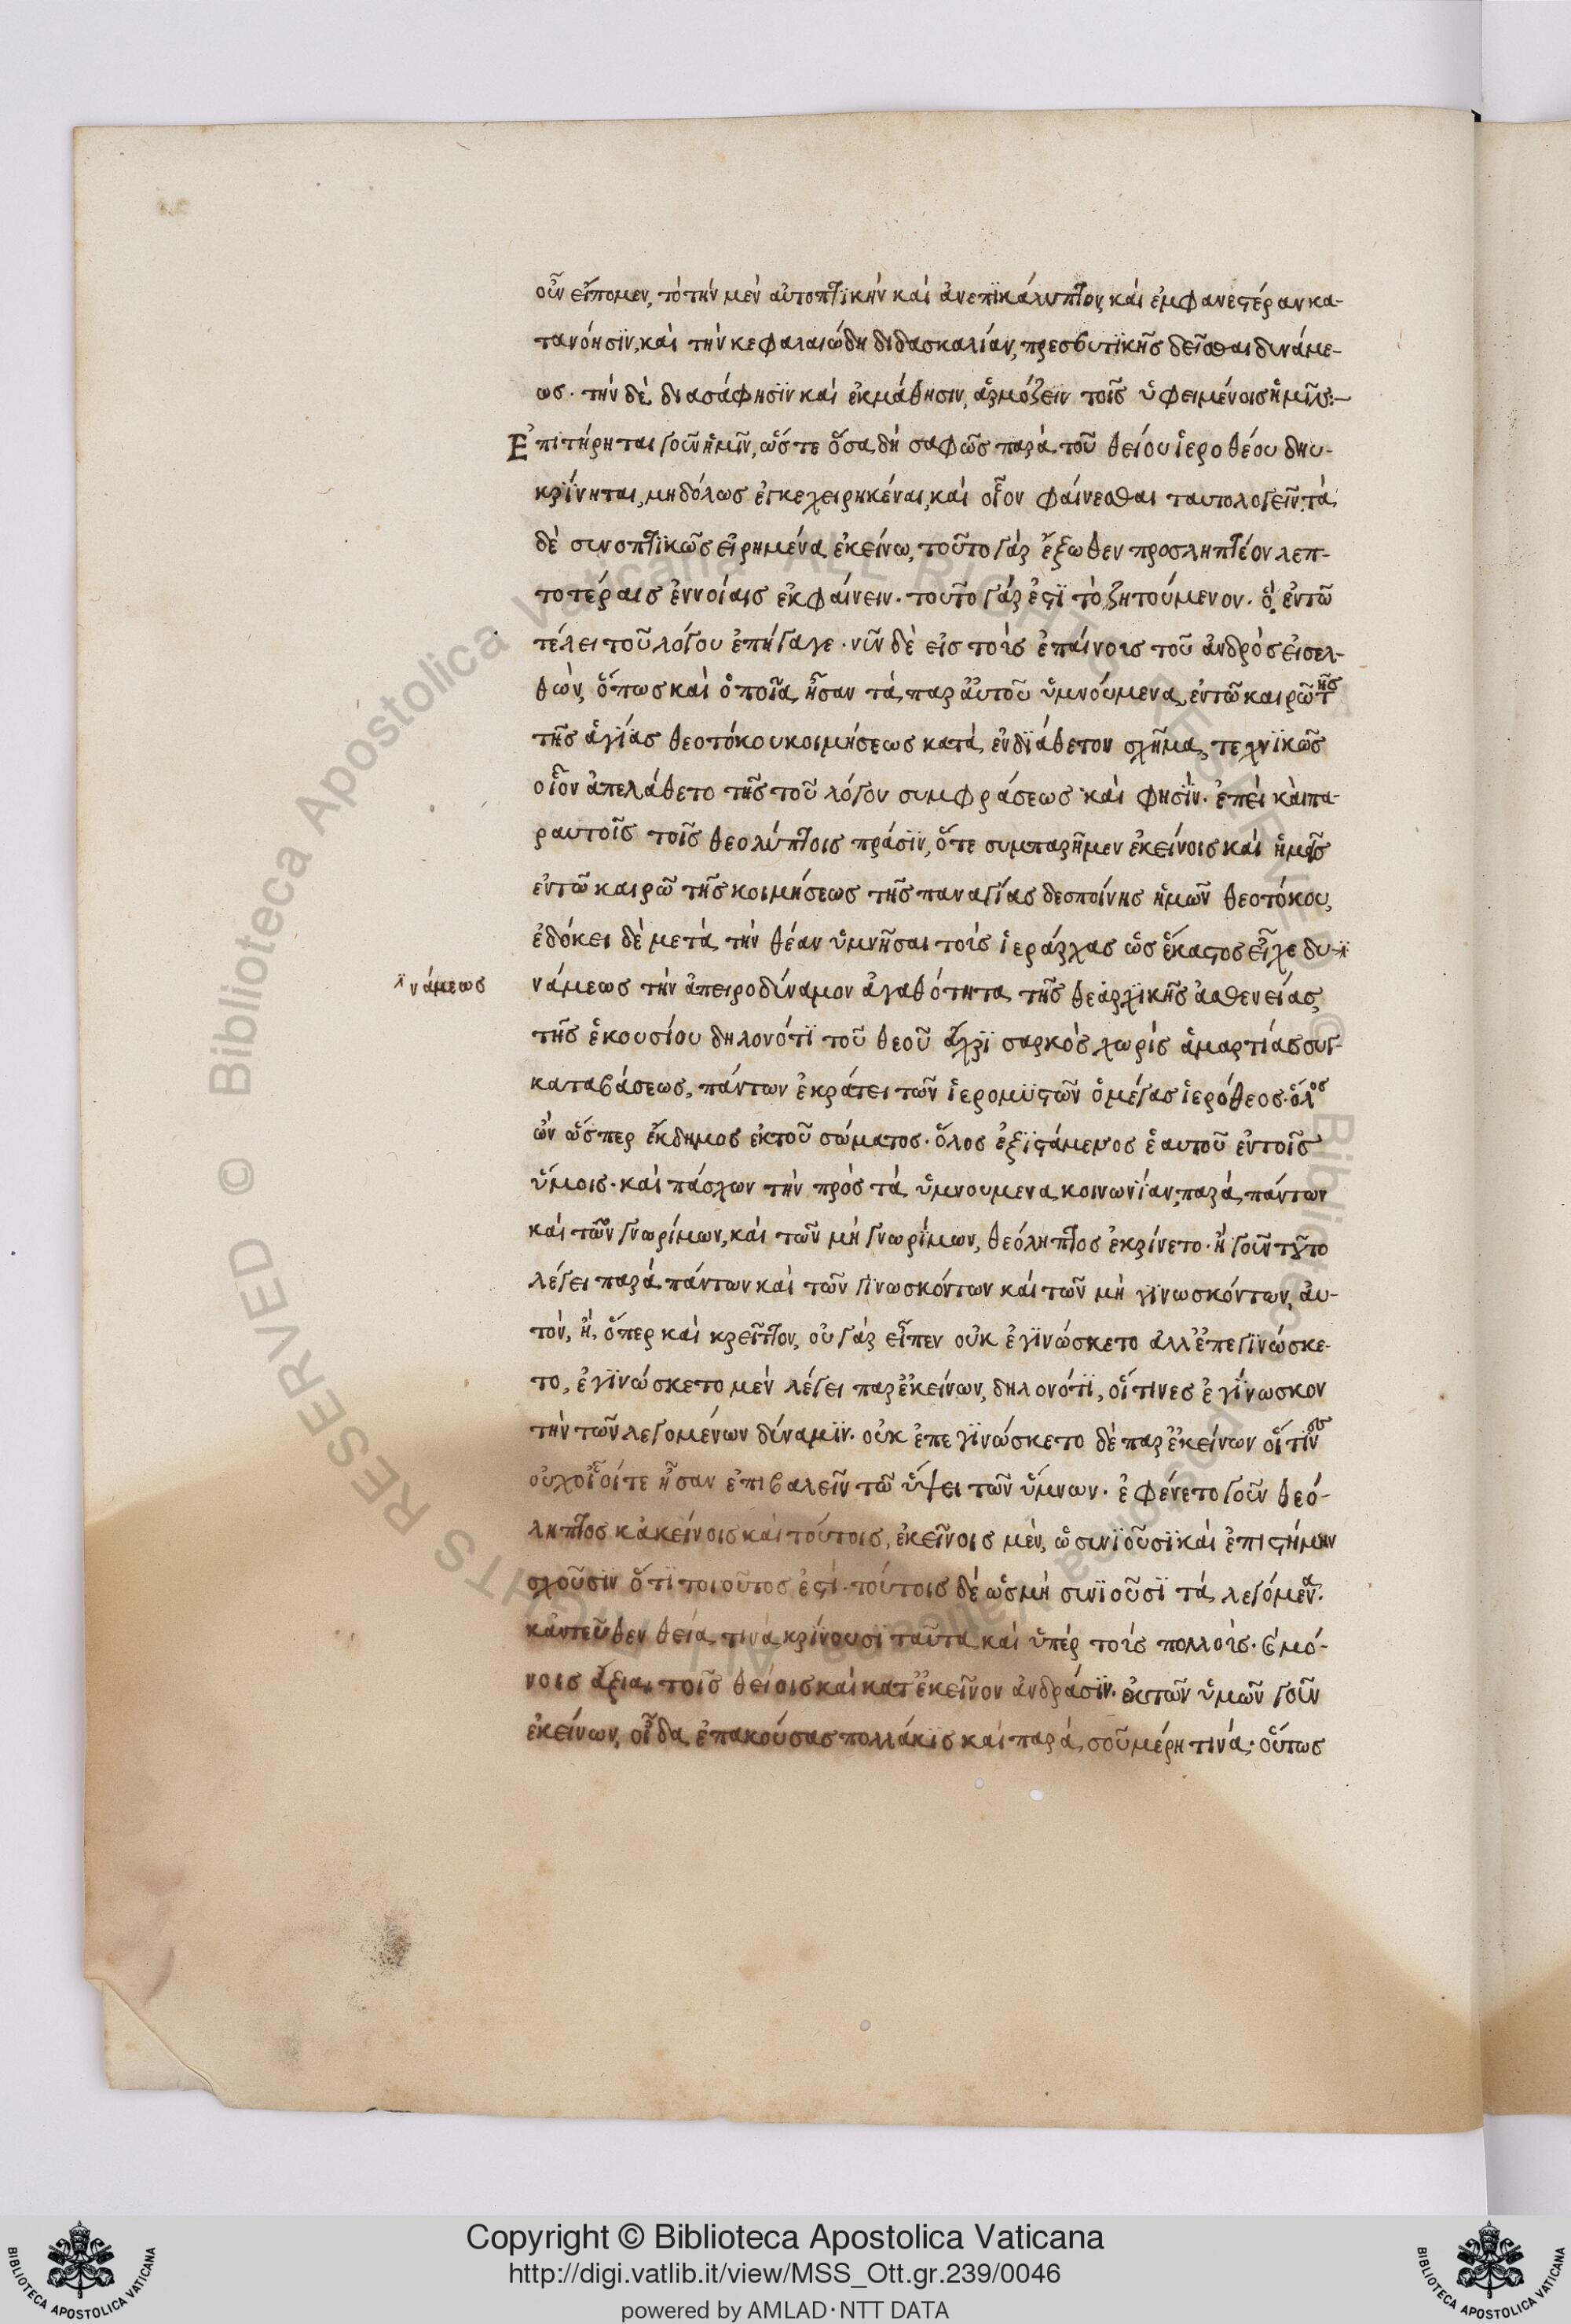 οὖν εἴπομεν, τὸ τὴν μὲν αὐτοπτϊκὴν καὶ ἀνεπϊκάλυπτον, καὶ ἐμφανεστέραν κα-
τανόησϊν, καὶ τὴν κεφαλαιώδη διδασκαλίαν, πρεσβυτϊκῆς δεῖσθαι δυνάμε-
ως. τὴν δὲ διασάφησϊν καὶ ἐκμάθησιν, ἁρμόζειν τοῖς ὑφειμένοις ἡμῖν:—
Ἐπιτήρηται γοῦν ἡμῖν, ὥστε ὅσα δὴ σαφῶς παρὰ τοῦ θείου ἱεροθέου δηυ-
κρίνηται, μηδόλως ἐγκεχειρηκέναι, καὶ οἷον φαίνεσθαι ταυτολογεῖν. τὰ
δὲ συνοπτϊκῶς εἰρημένα ἐκείνω, τοῦτο γὰρ ἔξωθεν προσληπτέον λεπ-
τοτέραις ἐννοίαις ἐκφαίνειν. τοῦτο γάρ ἐστϊ τὸ ζητούμενον. ὃ ἐν τῶ
τέλει τοῦ λόγου ἐπήγαγε. νῦν δὲ εἰς τοὺς ἐπαίνους τοῦ ἀνδρὸς εἰσελ-
θὼν, ὅπως καὶ ὁποῖα ἦσαν τὰ παρ αὐτοῦ ὑμνούμενα, ἐν τῶ καιρῶ τῆς
τῆς ἁγίας θεοτόκου κοιμήσεως κατὰ ἐνδϊάθετον σχῆμα, τεχνϊκῶς
οἷον ἀπελάθετο τῆς τοῦ λόγου συμφράσεως καὶ φησϊν. ἐπεὶ καὶ πα-
ραυτοῖς τοῖς θεολήπτοις πράσϊν, ὅτε συμπαρῆμεν ἐκείνοις καὶ ἡμεῖς
ἐν τῶ καιρῶ τῆς κοιμήσεως τῆς παναγίας δεσποίνης ἡμῶν θεοτόκου,
ἐδόκει δὲ μετὰ τὴν θέαν ὑμνῆσαι τοὺς ἱεράρχας ὡς ἕκαστος εἶχε δυ-
νάμεως
νάμεως τὴν ἀπειροδύναμον ἀγαθότητα τῆς θεαρχϊκῆς ἀσθενείας,
τῆς ἑκουσίου δηλονότϊ τοῦ θεοῦ ἄχρϊ σαρκὸς χωρὶς ἁμαρτίας συγ-
καταβάσεως, πάντων ἐκράτει τῶν ἱερομϋστῶν ὁ μέγας ἱερόθεος. ὅλος
ὢν ὥσπερ ἔκδημος ἐκ τοῦ σώματος. ὅλος ἐξϊστάμενος ἑαυτοῦ ἐν τοῖς
ὕμοις. καὶ πάσχων τὴν πρὸς τὰ ὑμνουμενα κοινωνίαν, παρὰ πάντων
καὶ τῶν γνωρίμων, καὶ τῶν μὴ γνωρίμων, θεόληπτος ἐκρίνετο. ἢ γοῦν τοῦτο
λέγει παρὰ πάντων καὶ τῶν γϊνωσκόντων καὶ τῶν μὴ γϊνωσκόντων, αὐ-
τὸν, ἢ, ὅπερ καὶ κρεῖττον, οὐ γὰρ εἶπεν οὐκ ἐγϊνώσκετο ἀλλ ἐπεγϊνώσκε-
το, ἐγϊνώσκετο μὲν λέγει παρ ἐκείνων, δηλονότϊ, οἵτινες ἐγίνωσκον
τὴν τῶν λεγομένων δύναμϊν. οὐκ ἐπεγϊνώσκετο δὲ παρ ἐκείνων οἵτινες
οὐχ οἷοίτε ἦσαν ἐπιβαλεῖν τῶ ὕψει τῶν ὕμνων. ἐφένετο γοῦν θεό-
ληπτος κἀκείνοις καὶ τούτοις, ἐκεῖνοις μὲν, ὡ συνϊοῦσϊ καὶ ἐπιστήμην
σχοῦσϊν ὅτϊ τοιοῦτος ἐστὶ. τούτοις δὲ ὡς μὴ συνϊοῦσϊ τὰ λεγόμενα.
κἀντεῦθεν θεία τινὰ κρίνουσϊ ταῦτα καὶ ὑπὲρ τοὺς πολλοὺς. ϐ μό-
νοις ἄξια τοῖς θείοις καὶ κατ ἐκεῖνον ἀνδράσϊν. ἐκ τῶν ὑμῶν γοῦν
ἐκείνων, οἶδα ἐπακούσας πολλάκϊς καὶ παρὰ σοῦ μέρη τινά. οὕτως
Copyright © Biblioteca Apostolica Vaticana
http://digi.vatlib.it/view/MSS_Ott.gr.239/0046
powered by AMLAD·NTT DATA